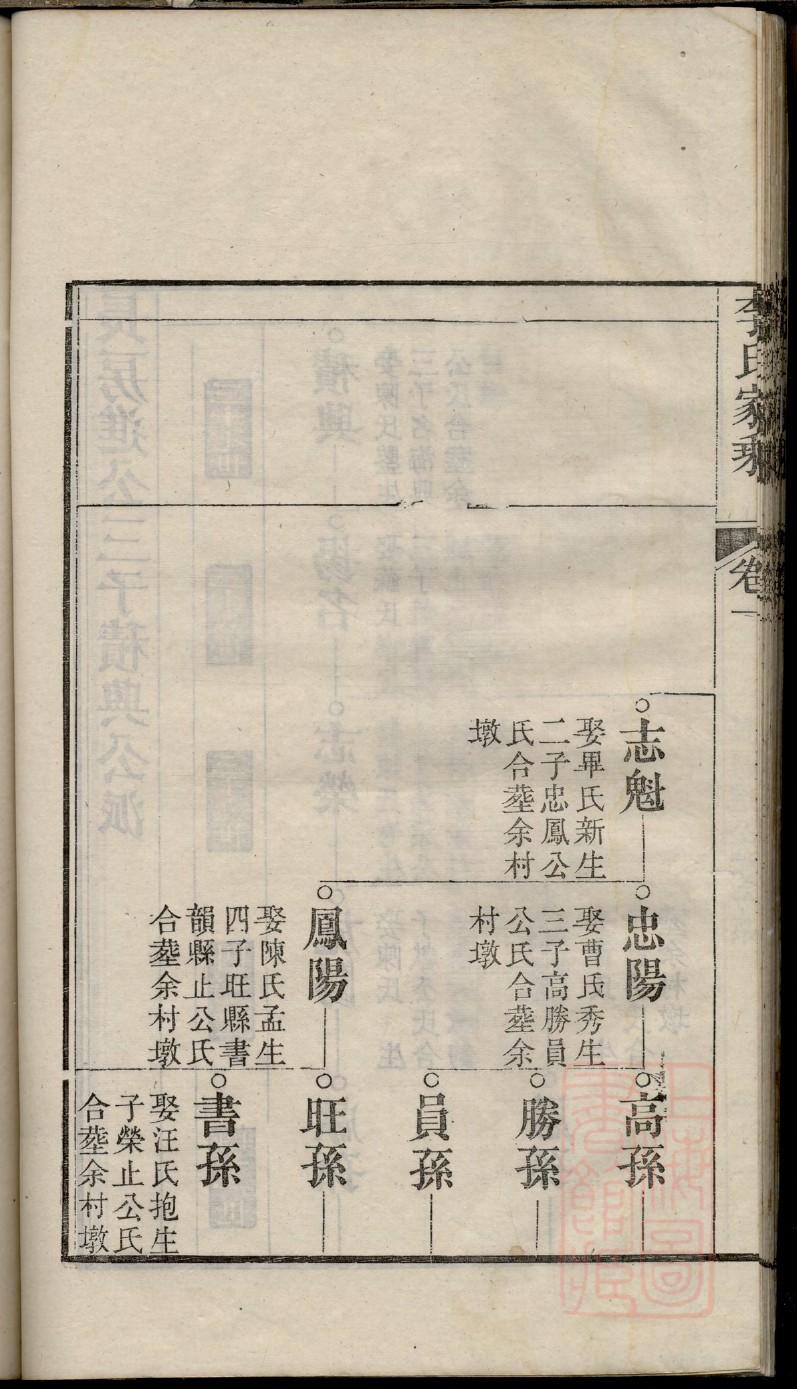 李氏家乘
卷一
志魁
娶畢氏新生
二子忠鳳公
氏合塟余村
墩
忠陽
娶曹氏秀生
三子高勝員
公氏合塟余
村墩
鳳陽
娶陳氏孟生
四子旺縣書
韻縣止公氏
合塟余村墩
高孫
勝孫
員孫
旺孫
書孫
娶汪氏抱生
子榮止公氏
合塟余村墩